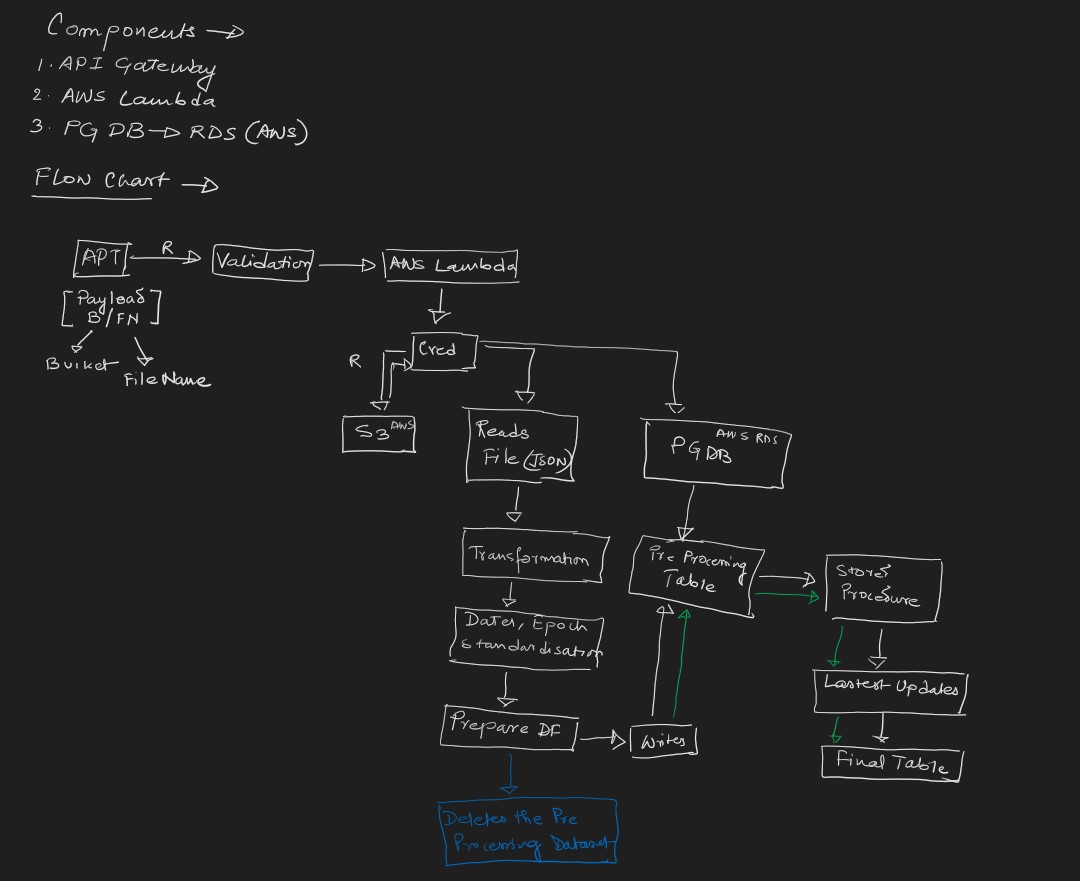 Components →
1. API Gateway
2. AWS Lambda
3. PG DB → RDS (AWS)
Flow Chart →
API
R
Validation
AWS Lambda
[Payload
B/FN]
Bucket
File Name
Cred
R
S3 AWS
Reads
File (JSON)
AWS RDS
PG DB
Transformation
Pre Processing
Table
Stored
Procedure
Dates, Epoch
Standardisation
Lastest Updates
Prepare DF
Writes
Final Table
Deletes the Pre
Processing Dataset